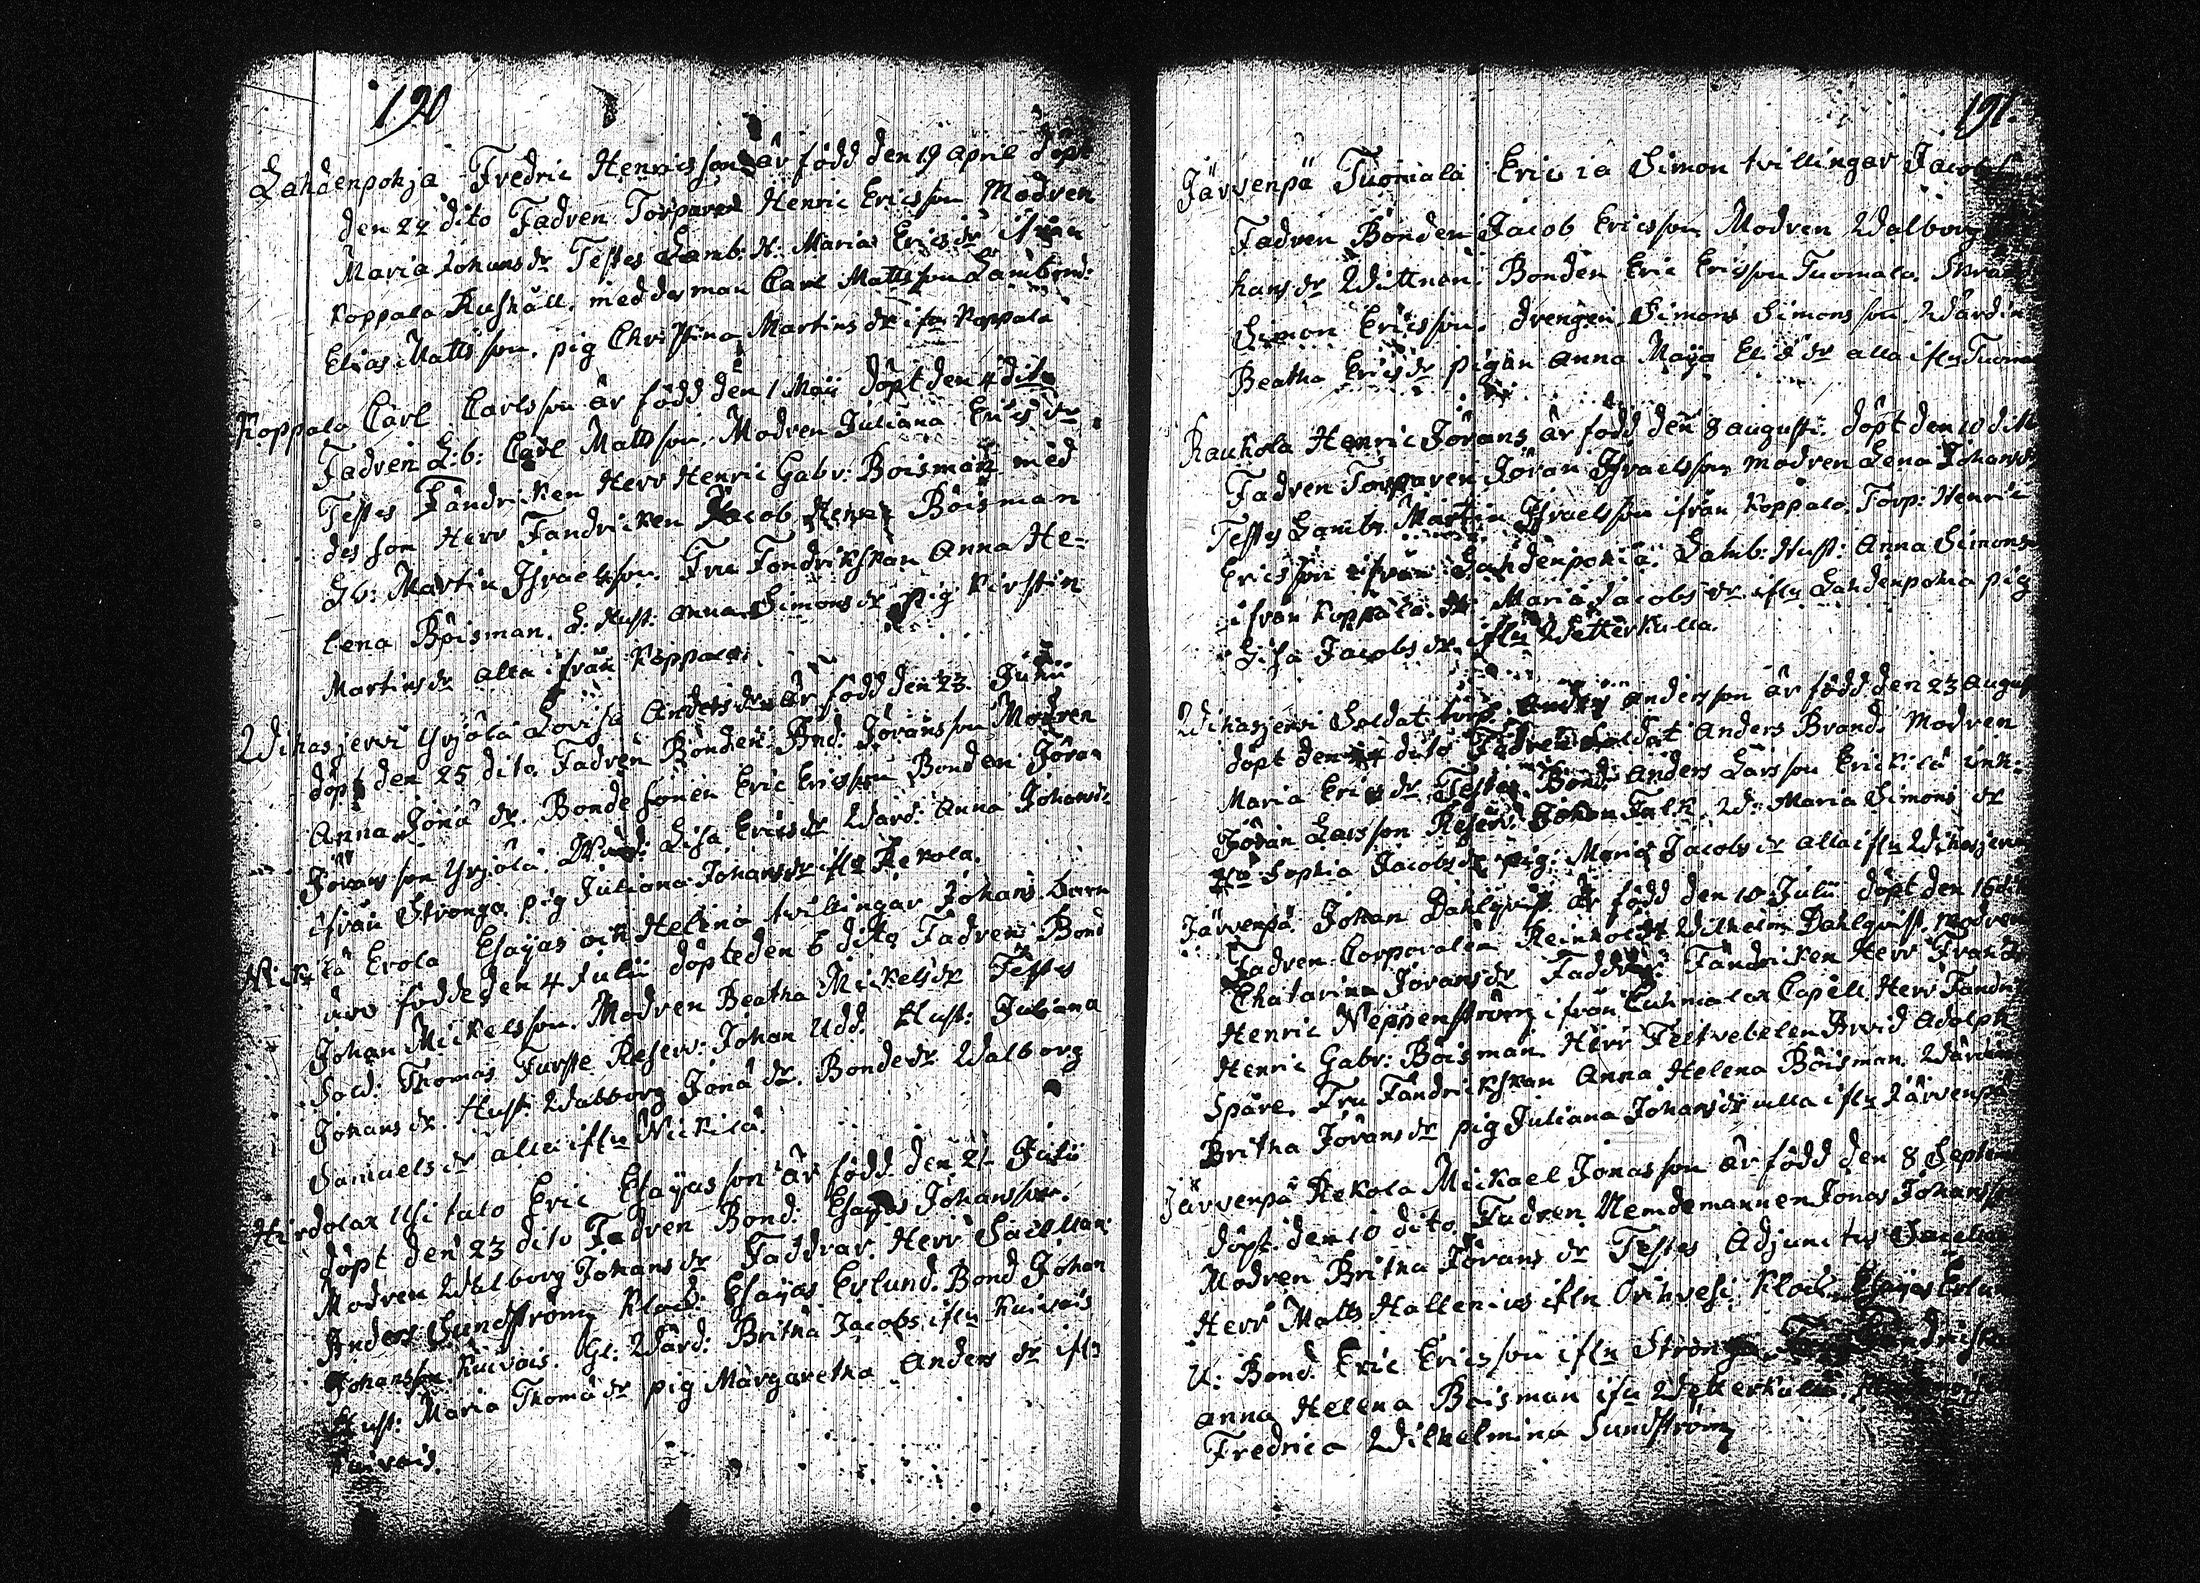 190
Lahdenpohja Fredric Henricsson är född den 19 April döpt
den 22 dito Fadren Torparen Henric Ericsson Modren
Maria Johansdr Testes Lamb: H: Maria Ericsdr ifrån
Koppala Rushåll. med des man Carl Mattsson Lambond:
Elias Mattsson. pig Christina Martinsdr ifrn Koppala
Koppala Carl Carlsson är född den 1 Maii döpt den 4 dito
Fadren L:b: Carl Mattsson. Modren Juliana Ericsdr
Testes Fändricken Herr Henric Gabr: Boisman med
des son Herr Fändricken Jacob Henr: Boisman
Lb: Martin Jsraelsson. Fru Fendrikskan Anna He=
lena Boisman. L: Hust: Anna Simonsdr pig Kirstin
Martinsdr alla ifrån Koppala.
Wihasjerwi Yrjölä Lovisa Andersdr är född den 23 Junii
döpt den 25 dito. Fadren Bonden And: Jöransson Modren
Anna Jonädr. Bondesonen Eric Ericsson Bonden Jöran
Jöransson Yrjölä. Wärd: Lisa Ericsdr Wärd: Anna Johansdr
ifrån Stronga. pig Juliana Johansdr ifrn Rekola.
Nickilä Erola Esayas och Helena tvillingar Johans barn
äro födde den 4 Julii döpte den 6 dito Fadren Bond
Johan Mickelsson. Modren Beatha Mickelsdr Testes
Sold: Thomas Furste Reserv: Johan Udd. Hust: Juliana
Johansdr. Hust: Walborg Jonädr. Bondedr Walborg
Samuelsdr alla ifrn Nickilä.
Hirdolax Usitalo Eric Esayasson är född den 21 Julii
döpt den 23 dito Fadren Bond: Esayas Johansson.
Modren Walborg Johansdr Faddrar. Herr Saellan:
Anders Sundström Klock: Esayas Erlund. Bond Johan
Johansson Kuivais. Gl: Wärd: Britha Jacobs ifrn Kuivais
Hust: Maria Thomädr pig Margaretha Andersdr ifrn
Kuivais.
191.
Järvenpä Tuomala Eric ia Simon tvillingar Jacobs
Fadren Bonden Jacob Ericsson Modren Walborg
hansdr Wittnen: Bonden Eric Ericsson Tuomala.
Simon Ericsson. drengen Simons Simonsson. Wärdin
Beatha Ericsdr pigan Anna Maija Eliædr alla ifrn Tuoma
Rauhola Henric Jörans är född den 8 augusti. döpt den 10 dito
Fadren Torparen Jöran Jsraelsson modren Lena Johansdr
Testes Lamb: Martin Jsraelsson ifrån Koppala, Torp: Henric
Ericsson ifrån Lahdenpohia. Lamb: Hust: Anna Simons
ifrån Koppala. H: Maria Jacobsdr ifrn Lahdenpohia pig
Lisa Jacobsdr. ifrn Wetterkulla.
Wihasjerwi Soldat torp. Anders Andersson är född den 23 August
döpt den 24 dito Fadren Soldat Anders Brand. Modren
Maria Ericsdr Testes Bond: Anders Larsson Erickilä
Jöran Larsson Reserv: Johan Falk. W: Maria Simonsdr
Ho Sophia Jacobsdr pig: Maria Jacobsdr alla ifrn Wihasjerv
Järvenpä Johan Dahlqvist är född den 10 Julii döpt den 16 dito
Fadren Corporalen Reinholdt Wilhelm Dahlqvist. Modren
Chatarina Joransdr Faddrar: Fändricken Herr Frandz
Henric Neppenström ifrån Cuhmalax Capell. Herr Fändr
Henric Gabr: Boisman Herr Feltvebelen Arvid Adolph
Spåre. Fru Fändrickskan Anna Helena Boisman. Wärdin
Britha Jöransdr pig Juliana Johansdr alla ifrn Järvenpä
Järvenpä Rekola Mickael Jonasson är född den 8 Septem
döpt den 10 dito. Fadren Nemdemannen Jonas Johansson
Modren Britha Joransdr Testes Adjunctus
Herr Matts Hallenius ifrn Orihvesi. Klock: Esayas Erlund
U: Bond. Eric Ericsson ifrn Stronga. Fru Fändriskan
anna Helena Boisman ifrn Wetterkulla.
Fredrica Wilhelmina Sundström